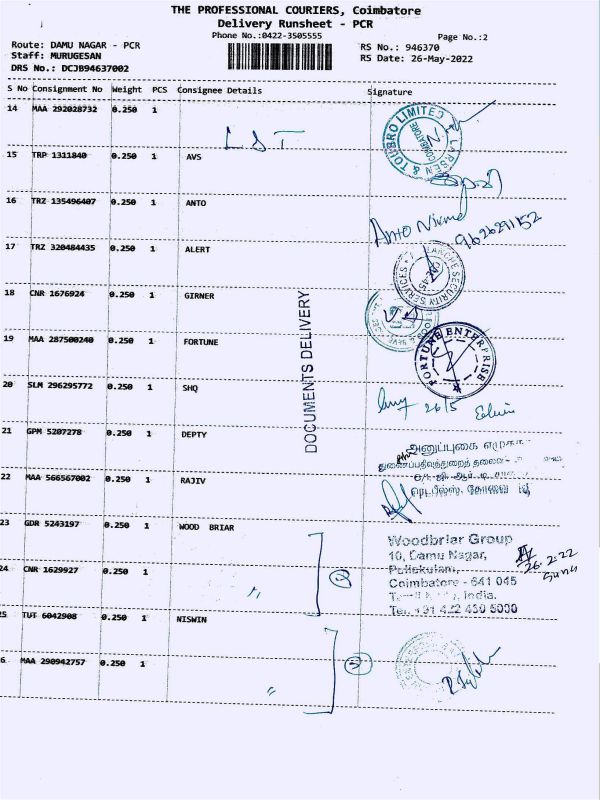 THE PROFESSIONAL COURIERS, Coimbatore
Delivery Runsheet - PCR
Phone No.:0422-3505555
Page No.:2
Route: DAMU NAGAR - PCR
RS No.: 946370
Staff: MURUGESAN
RS Date: 26-May-2022
DRS No.: DCJB94637002
S No Consignment No Weight PCS Consignee Details Signature
14 MAA 292028732 0.250 1
LARSEN & TOUBRO LIMITED COIMBATORE
15 TRP 1311840 0.250 1 AVS
16 TRZ 135496407 0.250 1 ANTO
Anto 9626291152
17 TRZ 320484435 0.250 1 ALERT
SECURITY SERVICES
18 CNR 1676924 0.250 1 GIRNER
19 MAA 287500240 0.250 1 FORTUNE
FORTUNE ENTERPRISE
DOCUMENTS DELIVERY
20 SLM 296295772 0.250 1 SHQ
26/5 Edwin
21 GPM 5207278 0.250 1 DEPTY
அனுப்புகை
22 MAA 566567002 0.250 1 RAJIV
23 GDR 5243197 0.250 1 WOOD BRIAR
Woodbriar Group
10, Damu Nagar,
Puliakulam,
Coimbatore - 641 045
India.
24 CNR 1629927 0.250 1 〃
2
25 TUT 6042908 0.250 1 NISWIN
26 MAA 290942757 0.250 1 〃